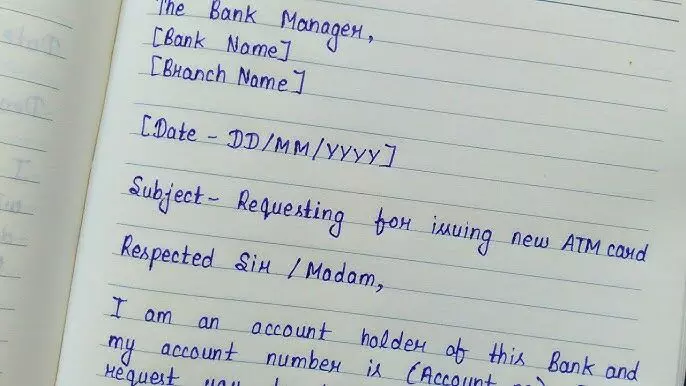 The Bank Manager,
[Bank Name]
[Branch Name]
[Date - DD/MM/YYYY]
Subject - Requesting for issuing new ATM card
Respected Sir / Madam,
I am an account holder of this Bank and
my account number is (Account
request you